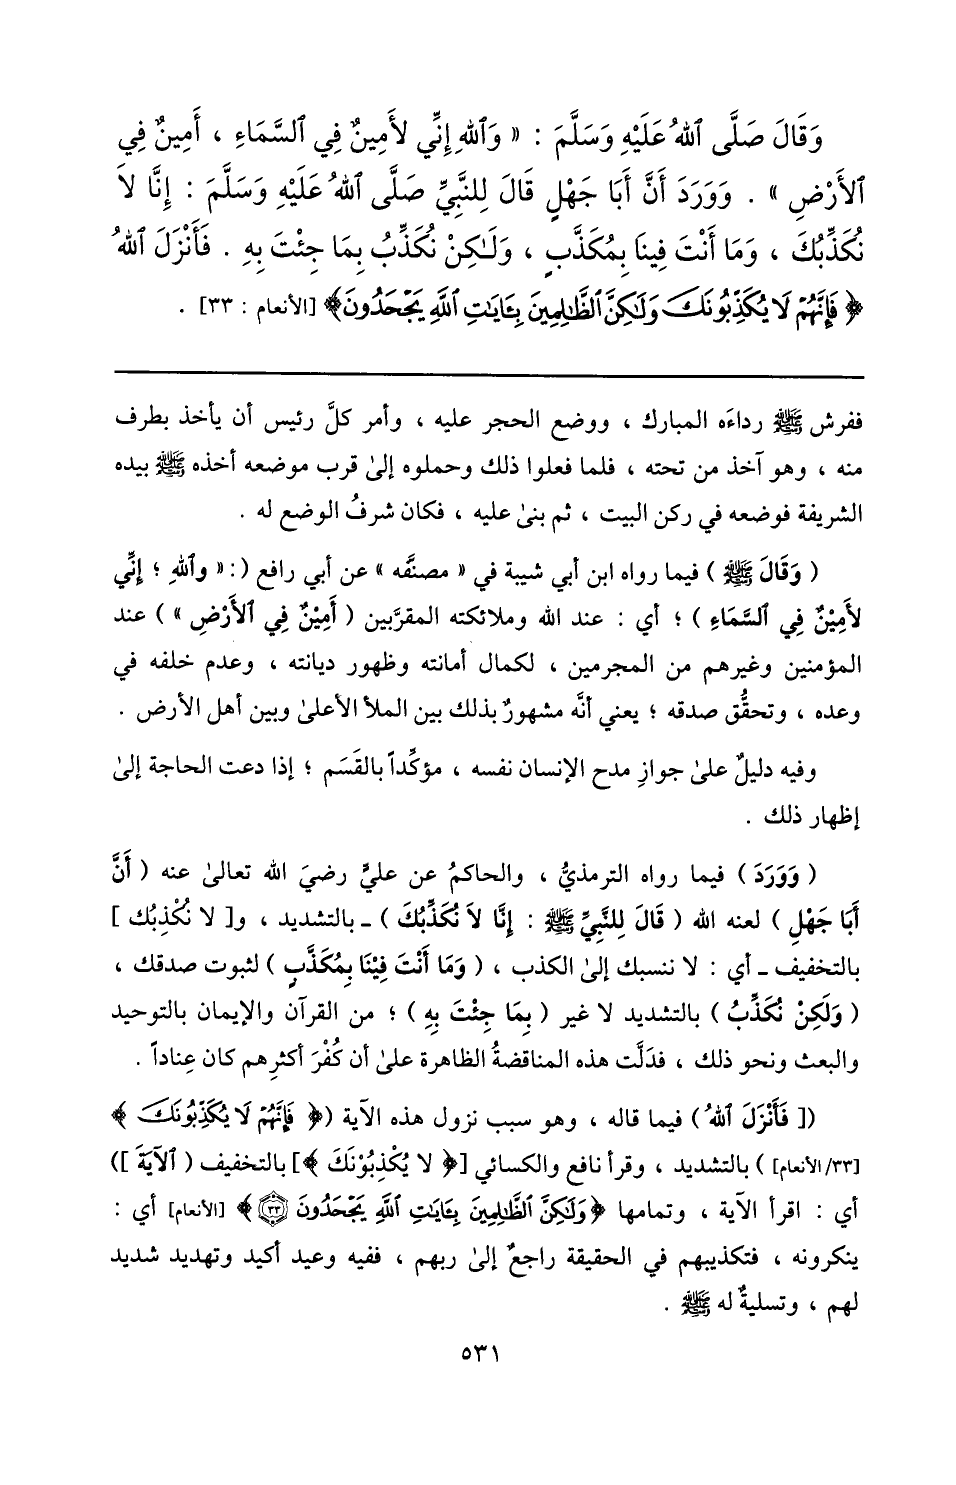 وَقَالَ صَلَّى ٱللهُ عَلَيْهِ وَسَلَّمَ : « وَٱللهِ إِنِّي لأَمِينٌ فِي ٱلسَّمَاءِ ، أَمِينٌ فِي
ٱلأَرْضِ » . وَوَرَدَ أَنَّ أَبَا جَهْلٍ قَالَ لِلنَّبِيِّ صَلَّى ٱللهُ عَلَيْهِ وَسَلَّمَ : إِنَّا لاَ
نُكَذِّبُكَ ، وَمَا أَنْتَ فِينَا بِمُكَذَّبٍ ، وَلَـٰكِنْ نُكَذِّبُ بِمَا جِئْتَ بِهِ . فَأَنْزَلَ ٱللهُ
﴿ فَإِنَّهُمْ لَا يُكَذِّبُونَكَ وَلَـٰكِنَّ ٱلظَّـٰلِمِينَ بِـَٔايَـٰتِ ٱللَّهِ يَجْحَدُونَ﴾ [الأنعام : ٣٣] .
ففرش ﷺ رداءَه المبارك ، ووضع الحجر عليه ، وأمر كلَّ رئيس أن يأخذ بطرف
منه ، وهو آخذ من تحته ، فلما فعلوا ذلك وحملوه إلىٰ قرب موضعه أخذه ﷺ بيده
الشريفة فوضعه في ركن البيت ، ثم بنىٰ عليه ، فكان شرفُ الوضع له .
( وَقَالَ ﷺ ) فيما رواه ابن أبي شيبة في « مصنَّفه » عن أبي رافع (: « وٱللهِ ؛ إِنِّي
لأَمِيْنٌ فِي ٱلسَّمَاءِ ) ؛ أي : عند الله وملائكته المقرَّبين ( أَمِيْنٌ فِي ٱلأَرْضِ » ) عند
المؤمنين وغيرهم من المجرمين ، لكمال أمانته وظهور ديانته ، وعدم خلفه في
وعده ، وتحقُّق صدقه ؛ يعني أنَّه مشهورٌ بذلك بين الملأ الأعلىٰ وبين أهل الأرض .
وفيه دليلٌ علىٰ جوازِ مدح الإنسان نفسه ، مؤكِّداً بالقَسَم ؛ إذا دعت الحاجة إلىٰ
إظهار ذلك .
( وَوَرَدَ ) فيما رواه الترمذيُّ ، والحاكمُ عن عليٍّ رضيَ الله تعالىٰ عنه ( أَنَّ
أَبَا جَهْلٍ ) لعنه الله ( قَالَ لِلنَّبِيِّ ﷺ : إِنَّا لاَ نُكَذِّبُكَ ) ـ بالتشديد ، و[ لا نُكْذِبُك ]
بالتخفيف ـ أي : لا ننسبك إلىٰ الكذب ، ( وَمَا أَنْتَ فِيْنَا بِمُكَذَّبٍ ) لثبوت صدقك ،
( وَلَكِنْ نُكَذِّبُ ) بالتشديد لا غير ( بِمَا جِئْتَ بِهِ ) ؛ من القرآن والإيمان بالتوحيد
والبعث ونحو ذلك ، فدَلَّت هذه المناقضةُ الظاهرة علىٰ أن كُفْرَ أكثرِهم كان عِناداً .
([ فَأَنْزَلَ ٱللهُ ) فيما قاله ، وهو سبب نزول هذه الآية (﴿ فَإِنَّهُمْ لَا يُكَذِّبُونَكَ ﴾
[٣٣/ الأنعام] ) بالتشديد ، وقرأ نافع والكسائي [﴿ لا يُكْذِبُوْنَكَ ﴾] بالتخفيف ( ٱلآيَةَ ])
أي : اقرأ الآية ، وتمامها ﴿ وَلَـٰكِنَّ ٱلظَّـٰلِمِينَ بِـَٔايَـٰتِ ٱللَّهِ يَجْحَدُونَ ٣٣ ﴾ [الأنعام] أي :
ينكرونه ، فتكذيبهم في الحقيقة راجعٌ إلىٰ ربهم ، ففيه وعيد أكيد وتهديد شديد
لهم ، وتسليةٌ له ﷺ .
٥٣١